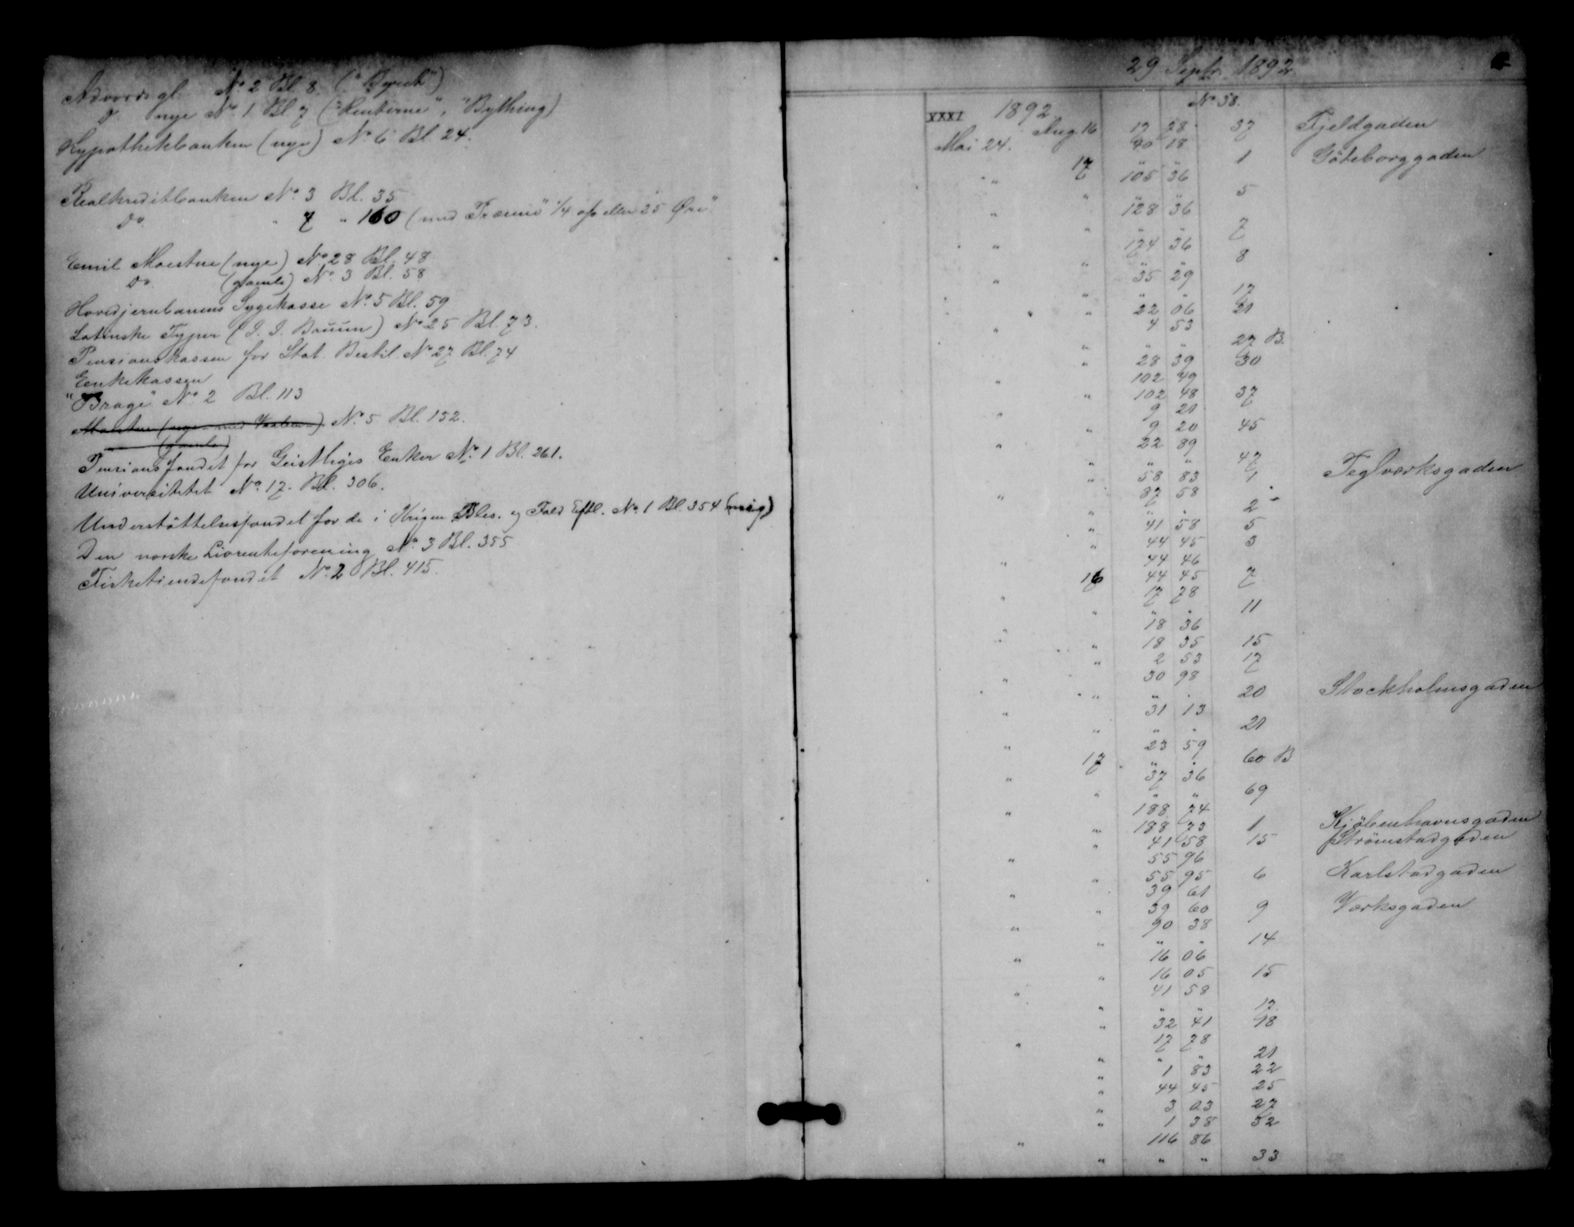 Advords gl. No 2 Bl. 8 ("Dyreb")
Do nye No 1 Bl. 7 ("Renterne", "Bything)
Hypothekbanken (nye) No 6 Bl. 24.
Realkreditbanken No 3 Bl. 35
Do " 7 " 160 (med Præmie" 1/4 o/o eller 25 Øre"
Emil Moestue (nye) No 28 Bl. 48
Do (gamle) No 3 Bl. 58
Hovedjernbanens Sygekasse No 5 Bl. 59
Latinske Typer (J. J. Bruun) No 25 Bl. 73.
Pensionskassen for Stat. Bestil. No 27 Bl. 74
Enkekassen
"Brage" No 2 Bl. 113
Moestue (nye No 5 Bl. 152.
(gamle)
Pensionsfondet for Geistliges Enker No 1 Bl. 261.
Universitetet No 17. Bl. 306.
Understøttelsesfondet for de i Krigen Bles. og Fald. Eftl. No 1 Bl. 354
Den norske Livrenteforening No 3 Bl. 355
Fisketiendefondet No 2 Bl. 415.
29 Septr. 1892
XXXI 1892 No 58.
Aug. 16 17 78 37 Fjeldgaden
Mai 24. 40 18
17 " " 1 Göteborggaden
" " 105 36
" " " 5
" 128 36
" " " 7
" 174 36
" " " 8
" 35 29
" " " 17
" 22 06 21
" 4 53
" " " 27 B.
" 28 39 30
" 102 49
" 102 48 37
" 9 21
" 9 20 45
" 22 89
" " " 47
" 58 83 1 Teglværksgaden
" 87 58
" " " 2
" 41 58 5
" 44 45 3
" 44 46
16 44 45 7
" 17 78
" " " 11
" 18 36
" 18 35 15
" 2 53 17
" 30 98
" " " 20 Stockholmsgaden
" 31 13
" " " 21
" 23 59
17 " " 60 B
" 37 36
" " " 69
" 188 74
" 188 73 1 Kjøbenhavnsgaden
" 41 58 15 Strømstadgaden
" 55 96
" 55 95 6 Karlstadgaden
" 39 61
" 39 60 9 Værksgaden
" 90 38
" " " 14
" 16 06
" 16 05 15
" 41 58
" " " 17
" 32 41 18
" 17 78
" " " 21
" 1 83 22
" 44 45 25
" 3 03 27
" 1 38 32
" 116 86
" " " 33